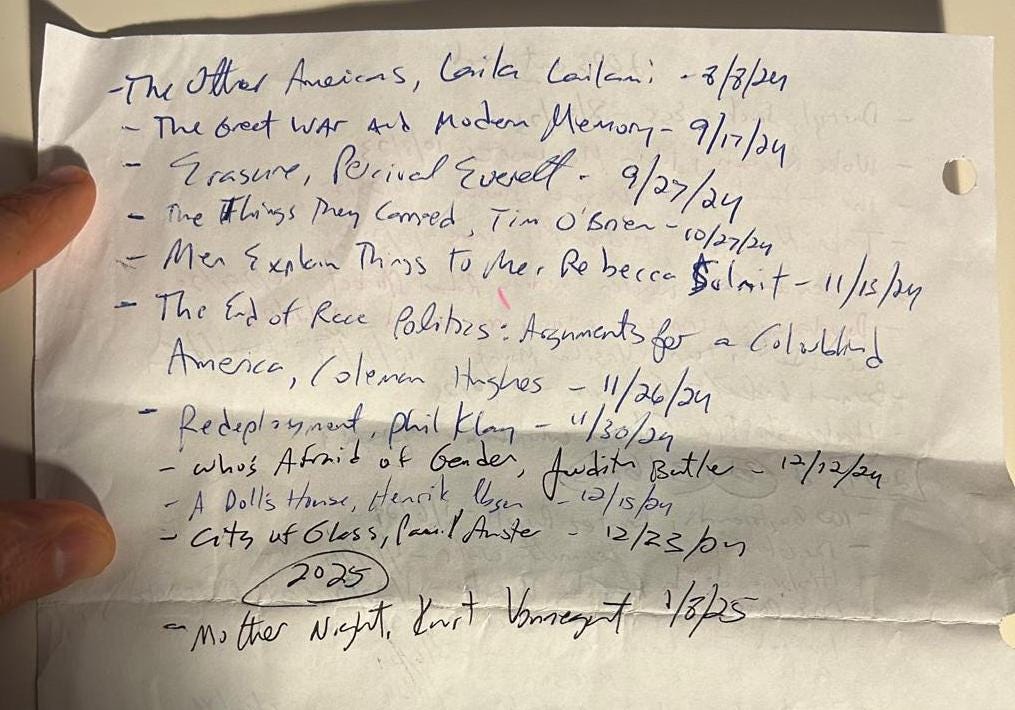 - The Other Americans, Laila Lailami - 8/8/24
- The Great War and Modern Memory - 9/17/24
- Erasure, Percival Everett - 9/27/24
- The Things They Carried, Tim O'Brien - 10/27/24
- Men Explain Things to Me, Rebecca Solnit - 11/15/24
- The End of Race Politics: Arguments for a Colorblind
America, Coleman Hughes - 11/26/24
- Redeployment, Phil Klay - 11/30/24
- Who's Afraid of Gender, Judith Butler - 12/12/24
- A Doll's House, Henrik Ibsen - 12/15/24
- City of Glass, Paul Auster - 12/23/24
2025
- Mother Night, Kurt Vonnegut 1/8/25